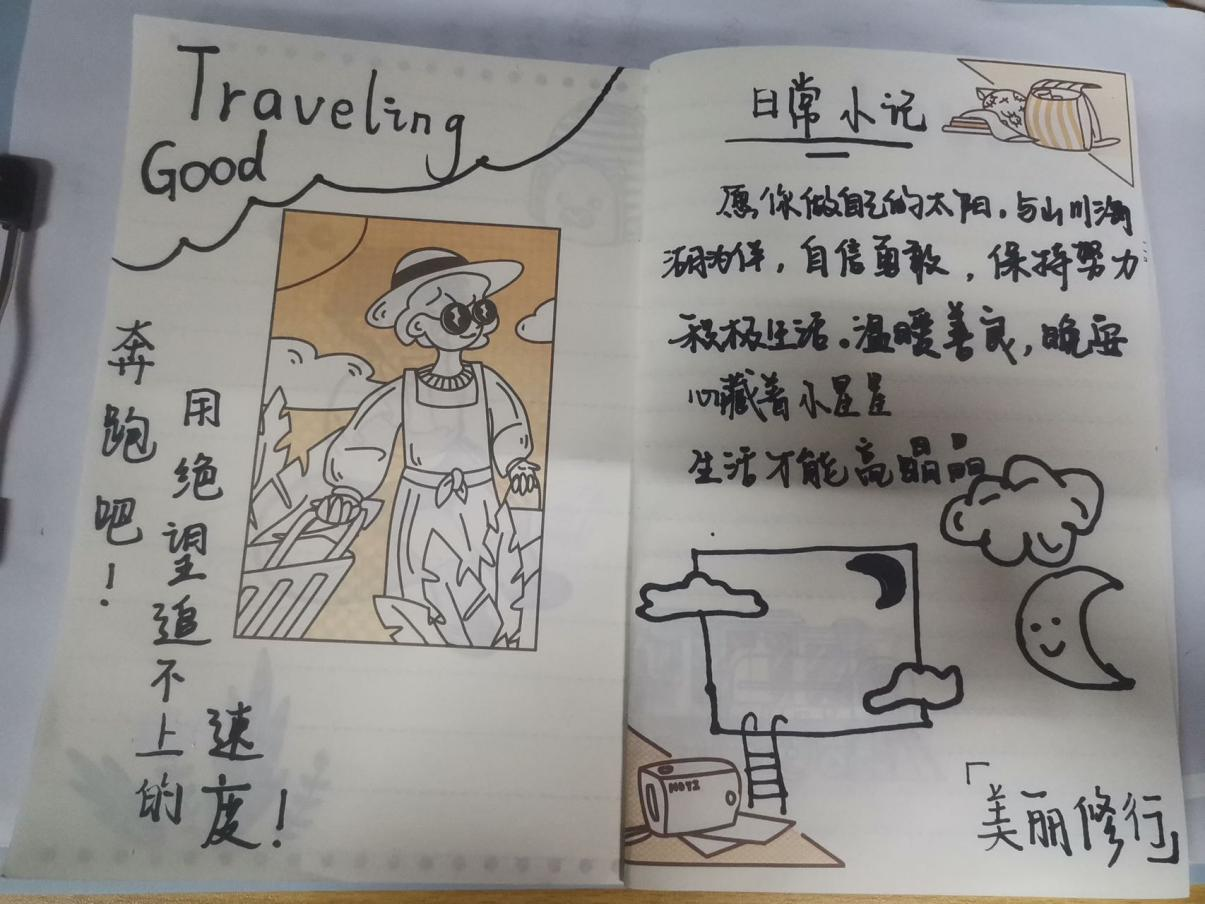 Traveling
Good
奔跑吧！
用绝望追不上的
速度！
日常小记
愿你做自己的太阳，与山川海
湖为伴，自信勇敢，保持努力
积极生活。温暖善良，晚安
心藏着小星星
生活才能亮晶晶
NOYZ
「美丽修行」